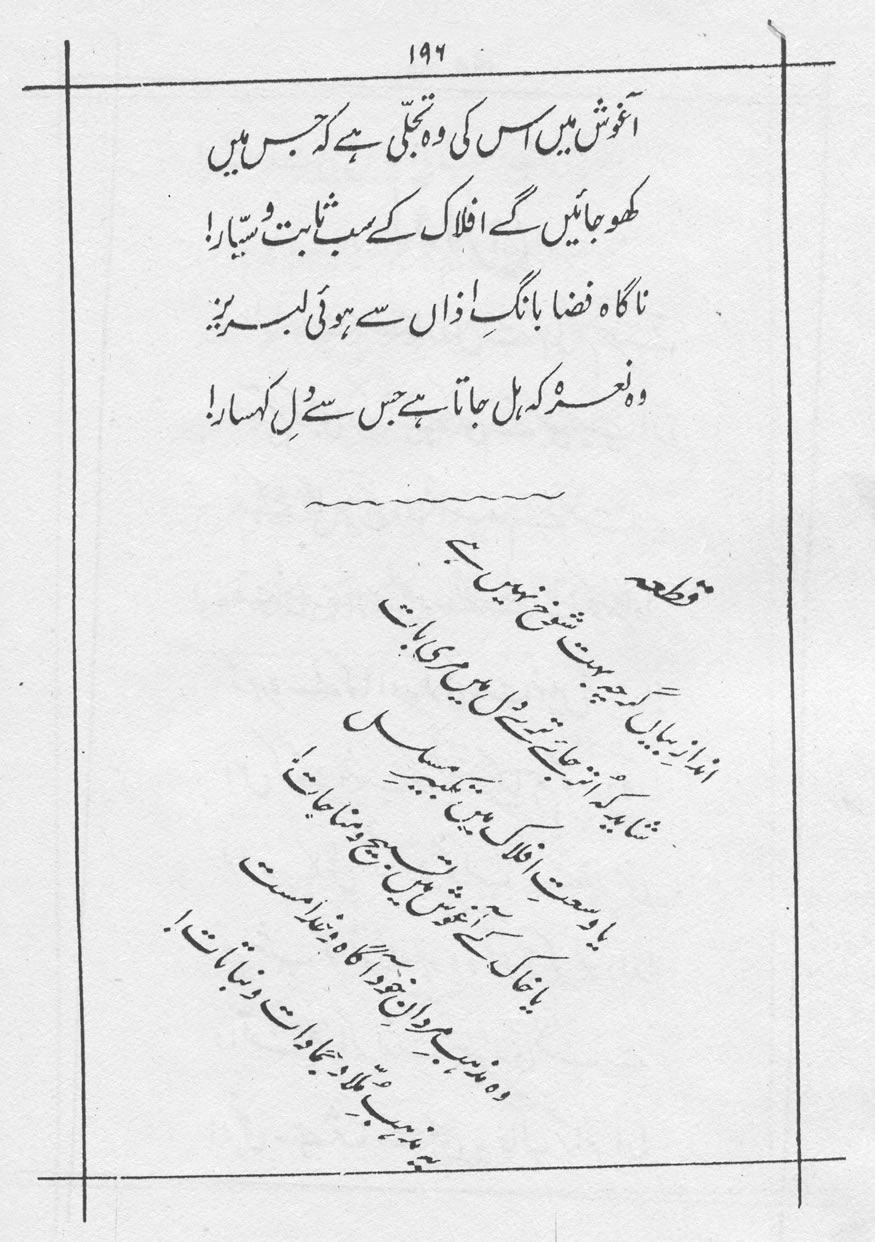 ۱۹۶
آغوش میں اس کی وہ تجلّی ہے کہ جس میں
کھو جائیں گے افلاک کے سب ثابت و سیّار!
ناگاہ فضا بانگِ اذاں سے ہوئی لبریز
وہ نعرہ کہ ہل جاتا ہے جس سے دلِ کہسار!
قطعہ
اندازِ بیاں گرچہ بہت شوخ نہیں ہے
شاید کہ اُتر جائے ترے دل میں مری بات
یا وسعتِ افلاک میں تکبیرِ مسلسل
یا خاک کے آغوش میں تسبیح و مناجات!
وہ مذہبِ مردانِ خود آگاہ و خدا مست
یہ مذہبِ مُلّا و جمادات و نباتات!